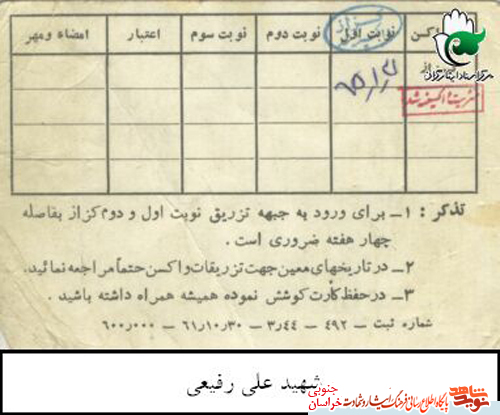 واکسن نوبت اول نوبت دوم نوبت سوم اعتبار امضاء ومهر
کزاز
مرکز اسناد ایثارگران
تذکر : ۱ــ برای ورود به جبهه تزریق نوبت اول و دوم کزاز بفاصله
چهار هفته ضروری است .
۲ــ در تاریخهای معین جهت تزریقات واکسن حتماً مراجعه نمائید.
۳ــ در حفظ کارت کوشش نموده همیشه همراه داشته باشید .
شماره ثبت – ۴۹۲ – ۳٫۴۴ – ۶۱٫۱۰٫۳۰ – ۶۰۰٫۰۰۰
شهید علی رفیعی
پایگاه اطلاع رسانی فرهنگ ایثار و شهادت خراسان جنوبی
نوید شاهد